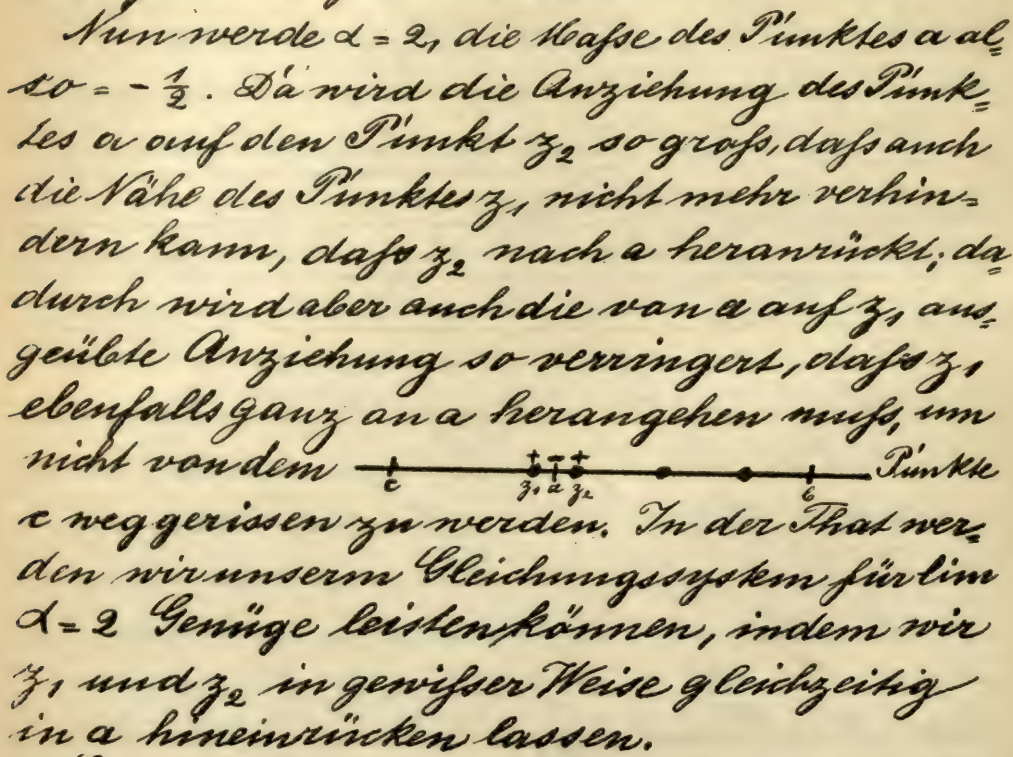 Nun werde α = 2, die Maſse des Punktes a al-
so = - 1/2. Da wird die Anziehung des Punk-
tes a auf den Punkt z₂ so groſs, daſs auch
die Nähe des Punktes z₁ nicht mehr verhin-
dern kann, daſs z₂ nach a heranrückt; da-
durch wird aber auch die von a auf z₁ aus-
geübte Anziehung so verringert, daſs z₁
ebenfalls ganz an a herangehen muſs, um
nicht von dem c + z₁ - a + z₂ b Punkte
c weggerissen zu werden. In der That wer-
den wir unserm Gleichungssystem für lim
α = 2 Genüge leisten können, indem wir
z₁ und z₂ in gewiſser Weise gleichzeitig
in a hineinrücken lassen.